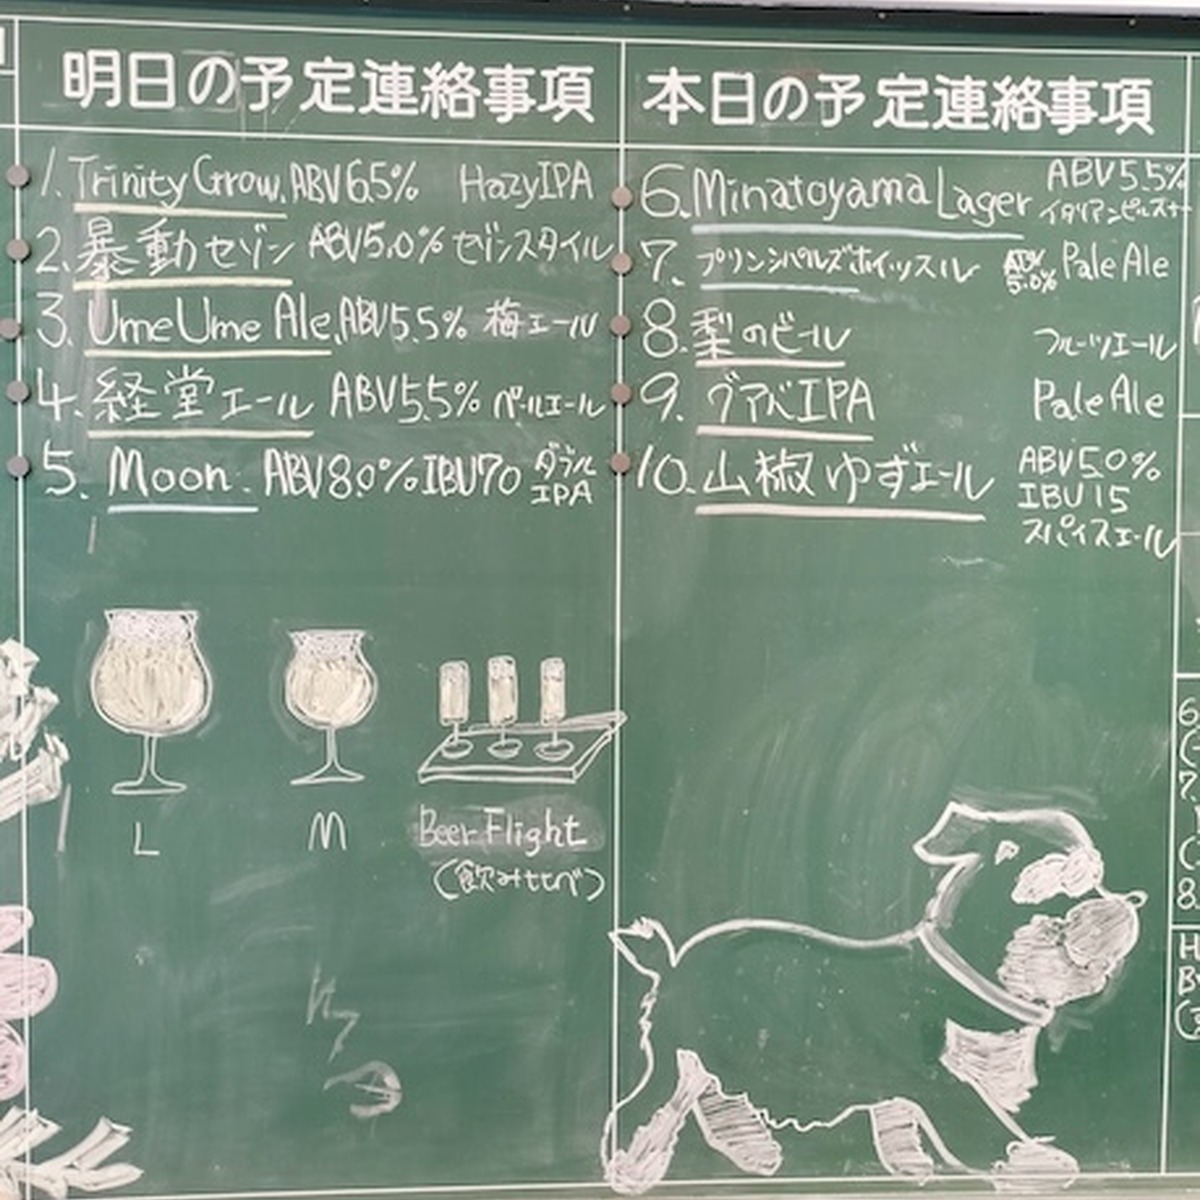 明日の予定連絡事項
1. Trinity Grow. ABV6.5% HazyIPA
2. 暴動セゾン ABV5.0% セゾンスタイル
3. UmeUme Ale. ABV5.5% 梅エール
4. 経堂エール ABV5.5% ペールエール
5. Moon. ABV8.0% IBU70 ダブル
IPA
L
M
Beer Flight
(飲み比べ)
本日の予定連絡事項
6. Minatoyama Lager ABV5.5%
イタリアンピルスナー
7. プリンシパルズホイッスル ABV
5.0% Pale Ale
8. 梨のビール フルーツエール
9. グアバIPA Pale Ale
10. 山椒ゆずエール ABV5.0%
IBU15
スパイスエール
6
7.
8.